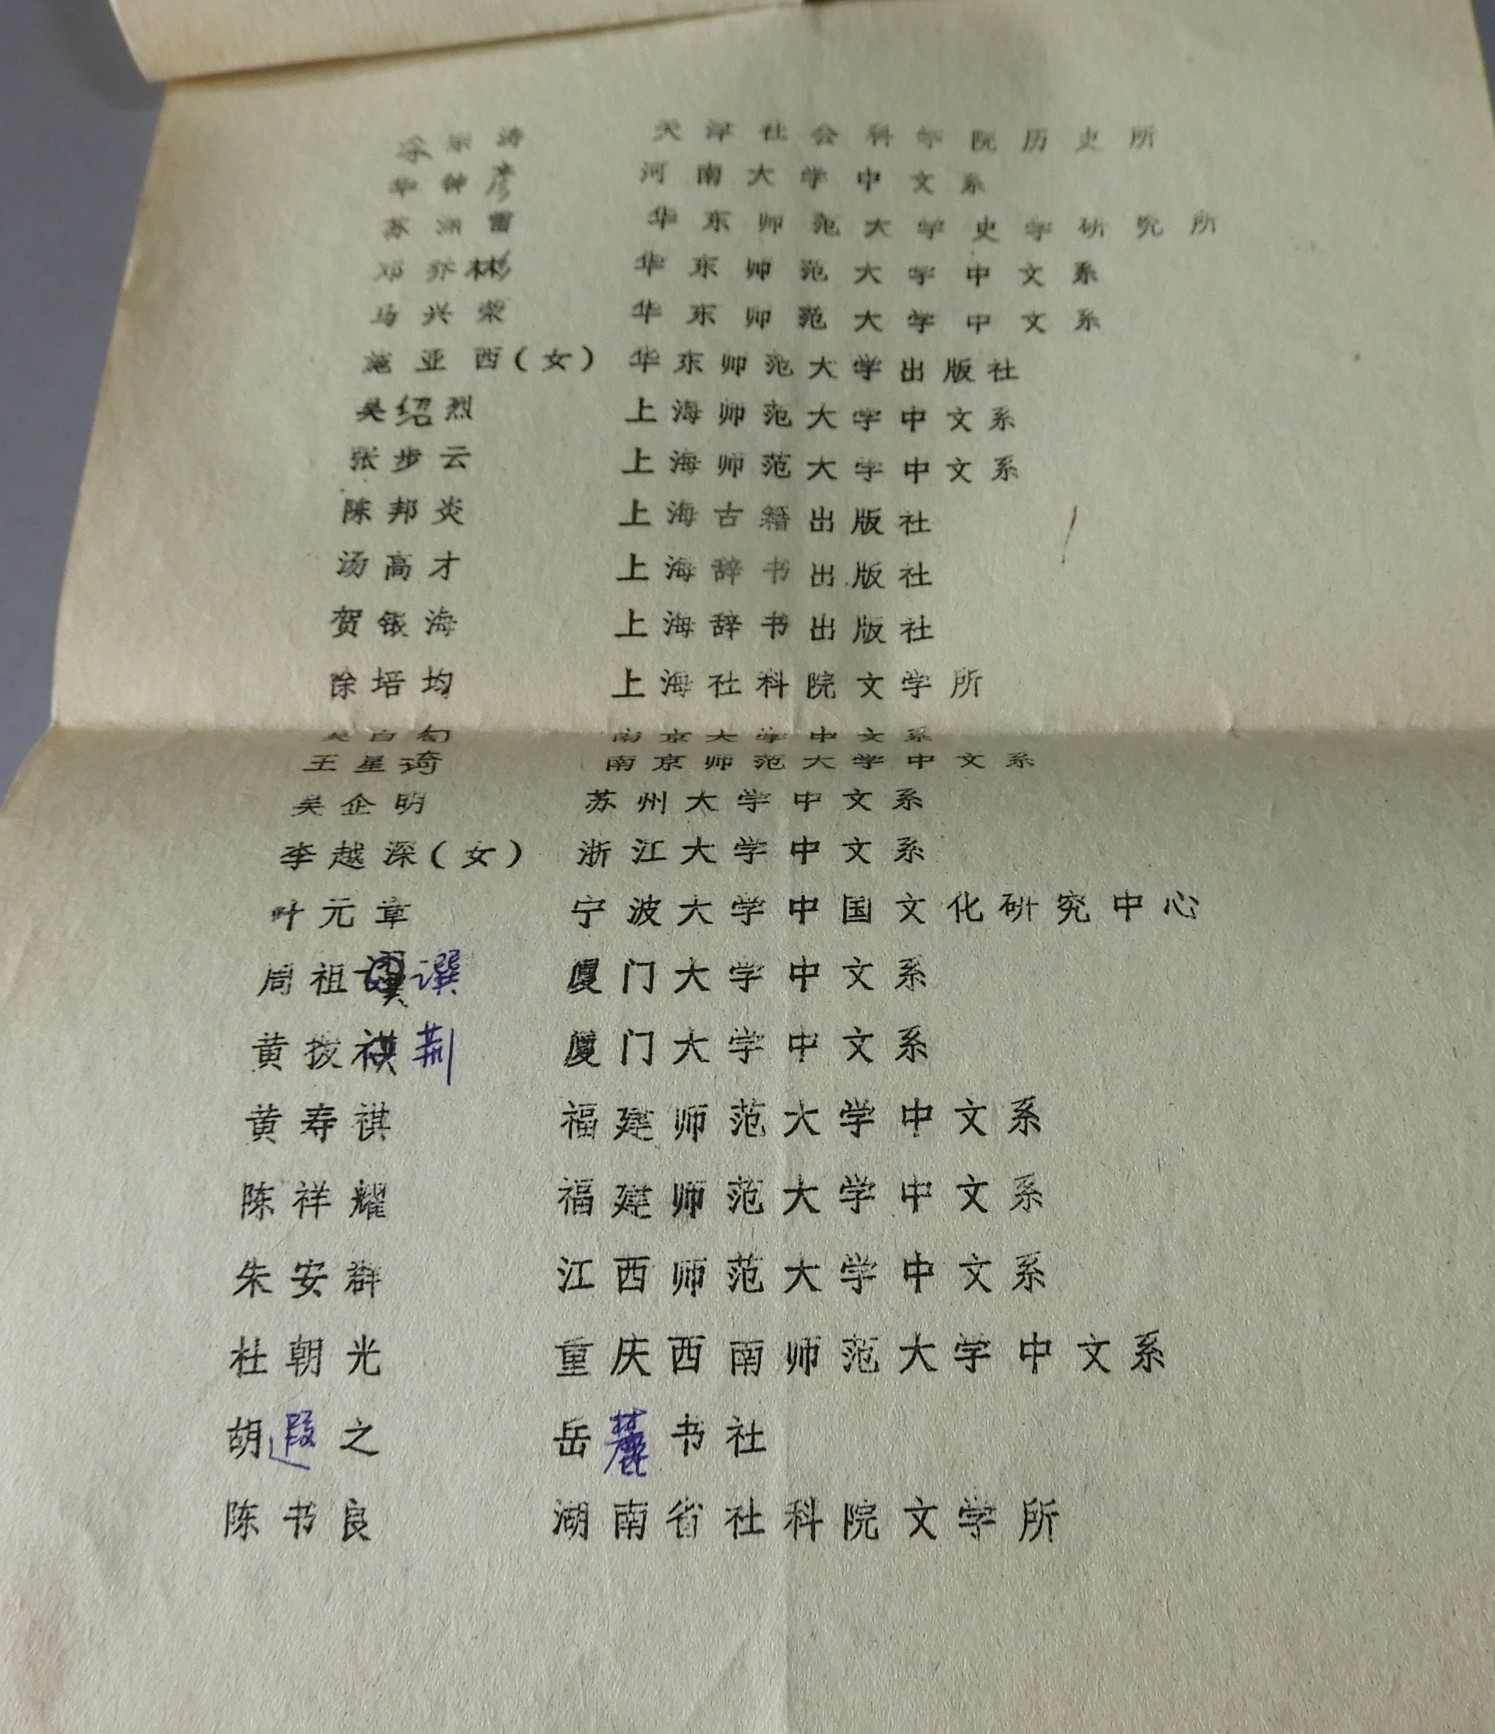 天津社会科学院历史所
华钟彦 河南大学中文系
苏渊雷 华东师范大学史学研究所
邓乔彬 华东师范大学中文系
马兴荣 华东师范大学中文系
施亚西(女) 华东师范大学出版社
吴绍烈 上海师范大学中文系
张步云 上海师范大学中文系
陈邦炎 上海古籍出版社
汤高才 上海辞书出版社
贺银海 上海辞书出版社
徐培均 上海社科院文学所
吴白匋 南京大学中文系
王星琦 南京师范大学中文系
吴企明 苏州大学中文系
李越深(女) 浙江大学中文系
叶元章 宁波大学中国文化研究中心
周祖譔 厦门大学中文系
黄拔荆 厦门大学中文系
黄寿祺 福建师范大学中文系
陈祥耀 福建师范大学中文系
朱安群 江西师范大学中文系
杜朝光 重庆西南师范大学中文系
胡遐之 岳麓书社
陈书良 湖南省社科院文学所